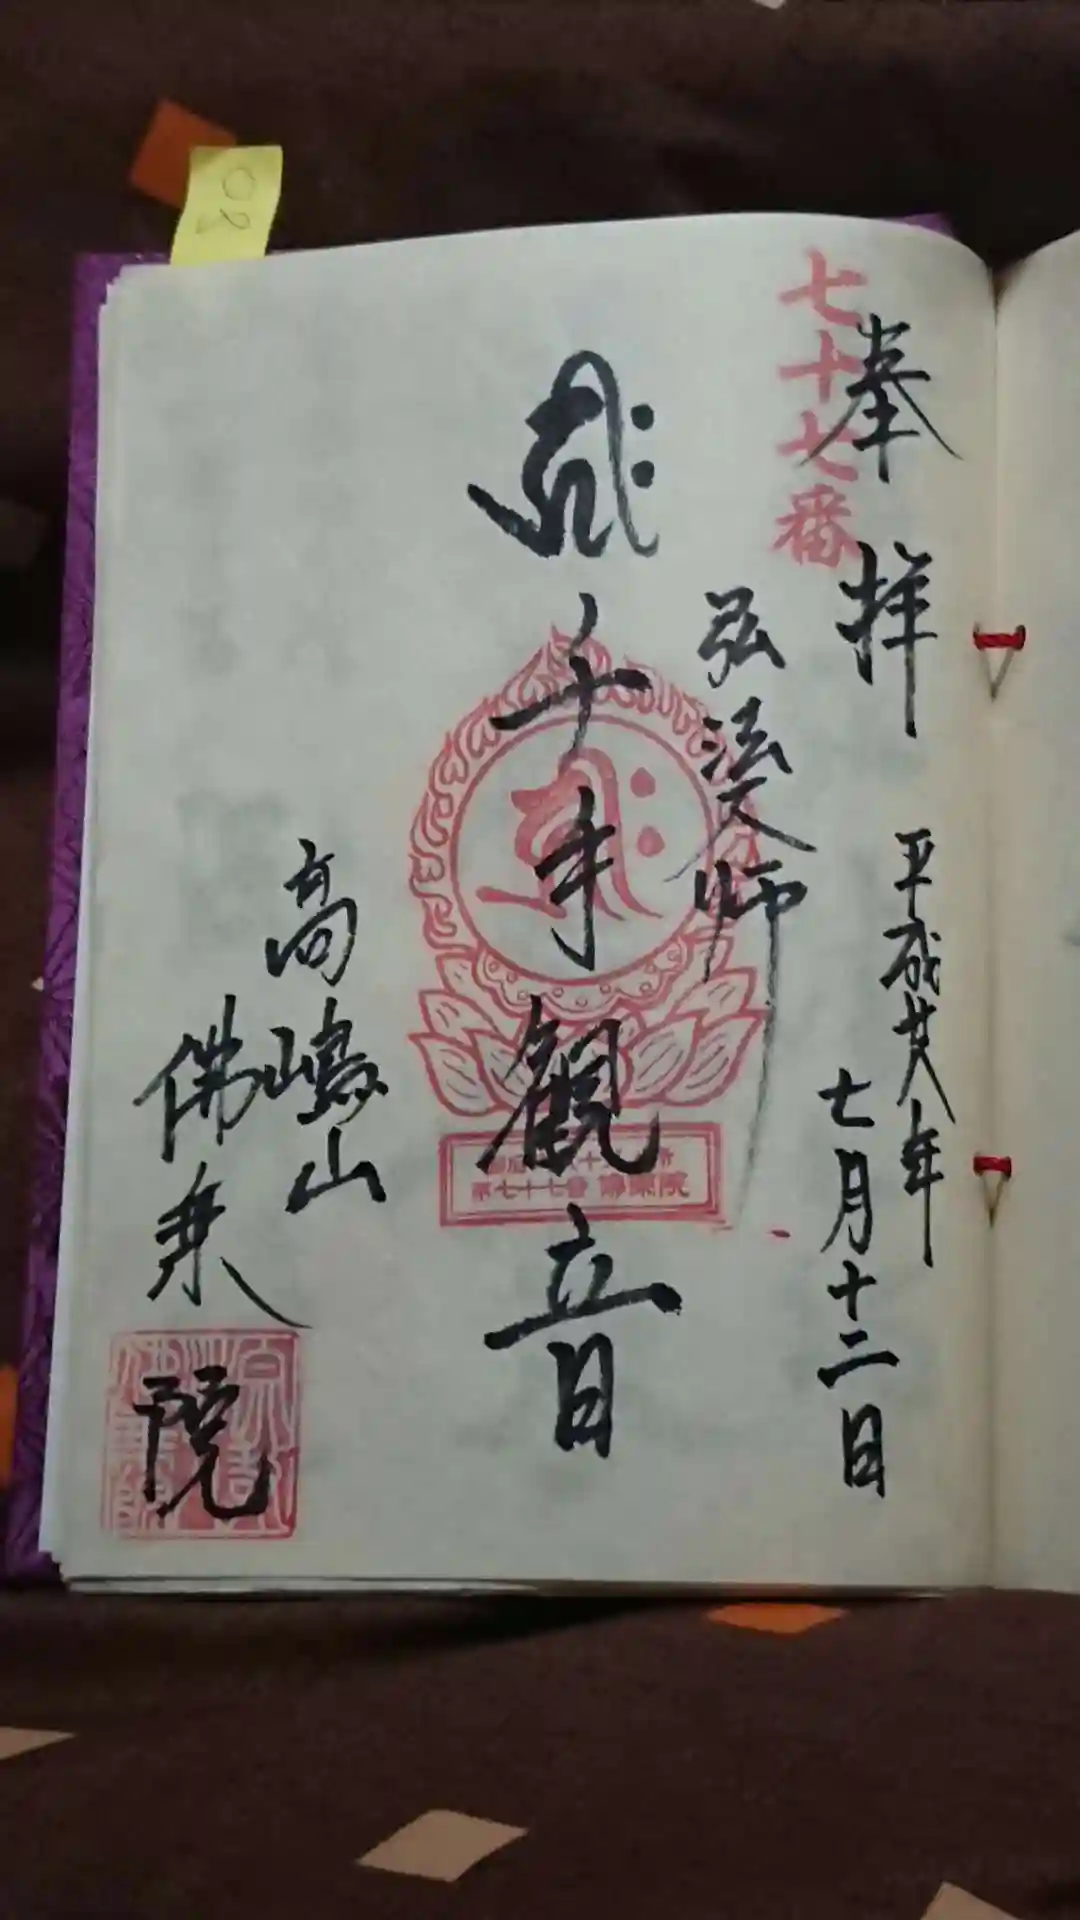 奉拝
平成廿八年
七月十二日
七十七番
弘法大師
千手観音
第七十七番 佛乗院
高嶋山
佛乗院